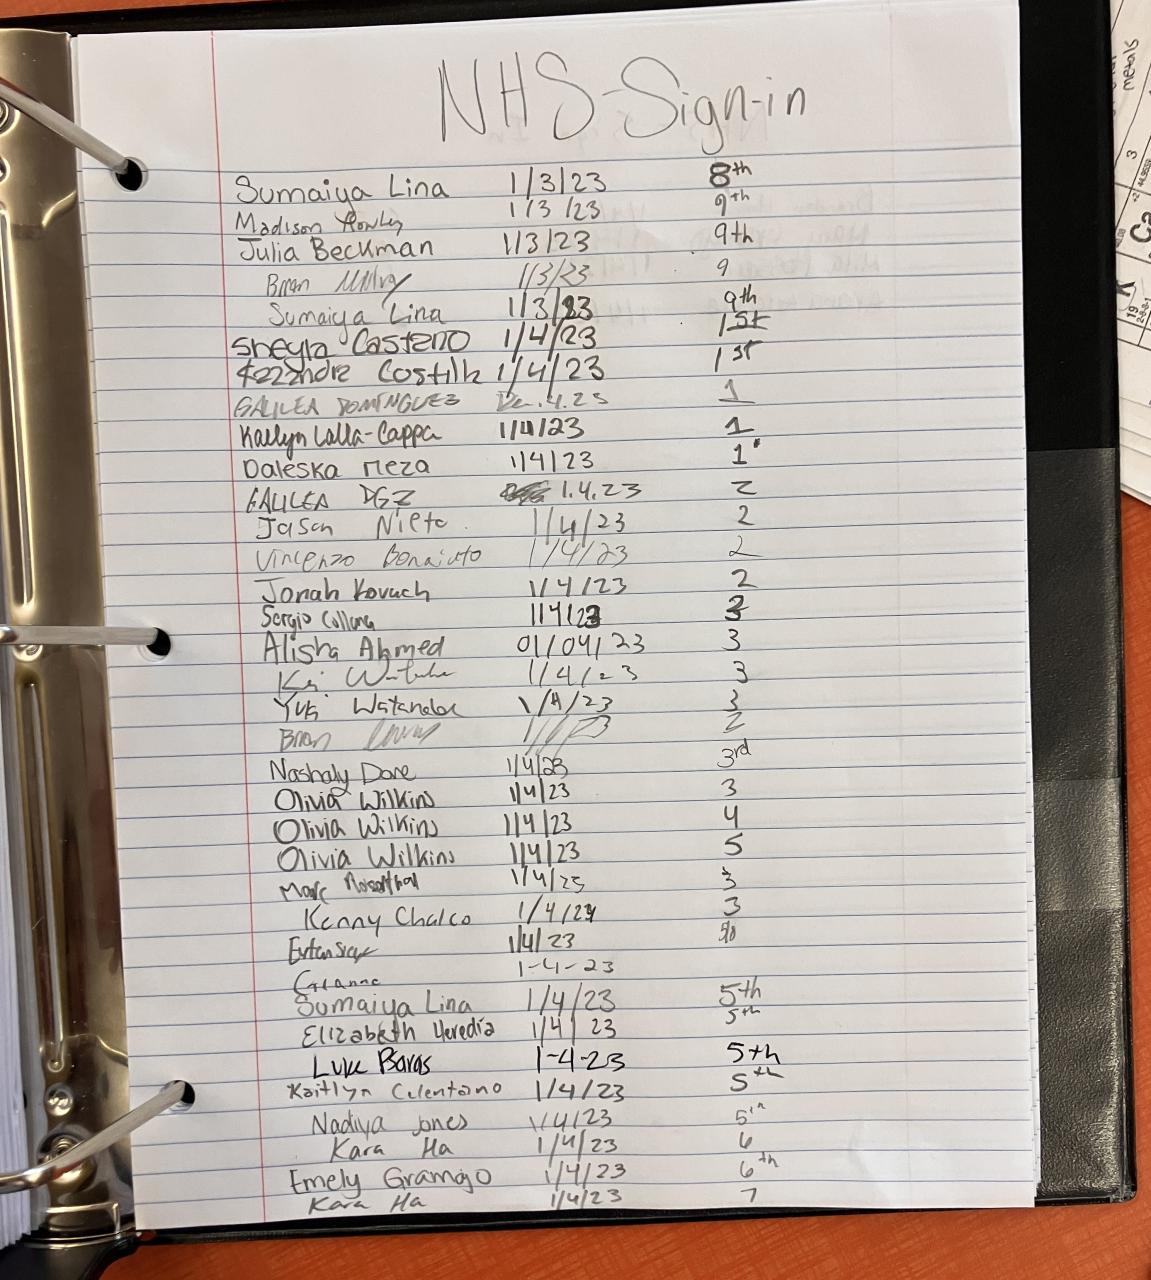 NHS-Sign-in
Sumaiya Lina 1/3/23 8th
Madison 1/3/23 9th
Julia Beckman 1/3/23 9th
Brian 1/3/23 9
Sumaiya Lina 1/3/23 9th
Sheyla Casteno 1/4/23 1st
1/4/23 1st
GALILEA DOMINGUEZ 1
Kaelyn Lalla-Cappa 1/4/23 1
Daleska Meza 1/4/23 1
GALILEA DGZ 1.4.23 2
Jason Nieto 1/4/23 2
Vincenzo Bonaiuto 1/4/23 2
Jonah Kovach 1/4/23 2
Sergio 1/4/23 3
Alisha Ahmed 01/04/23 3
Kai 1/4/23 3
Yuki Watanabe 1/4/23 3
Brian 2
Nashaly Dore 1/4/23 3rd
Olivia Wilkins 1/4/23 3
Olivia Wilkins 1/4/23 4
Olivia Wilkins 1/4/23 5
Marc Rosenthal 1/4/23 3
Kenny Chalco 1/4/23 3
1/4/23
1-4-23
Sumaiya Lina 1/4/23 5th
Elizabeth Heredia 1/4/23 5th
Luke Baras 1-4-23 5th
Kaitlyn Celentano 1/4/23 5th
Nadiya Jones 1/4/23 5th
Kara Ha 1/4/23 6
Emely Gramigo 1/4/23 6th
Kara Ha 1/4/23 7
metals
3
Ca
19
K